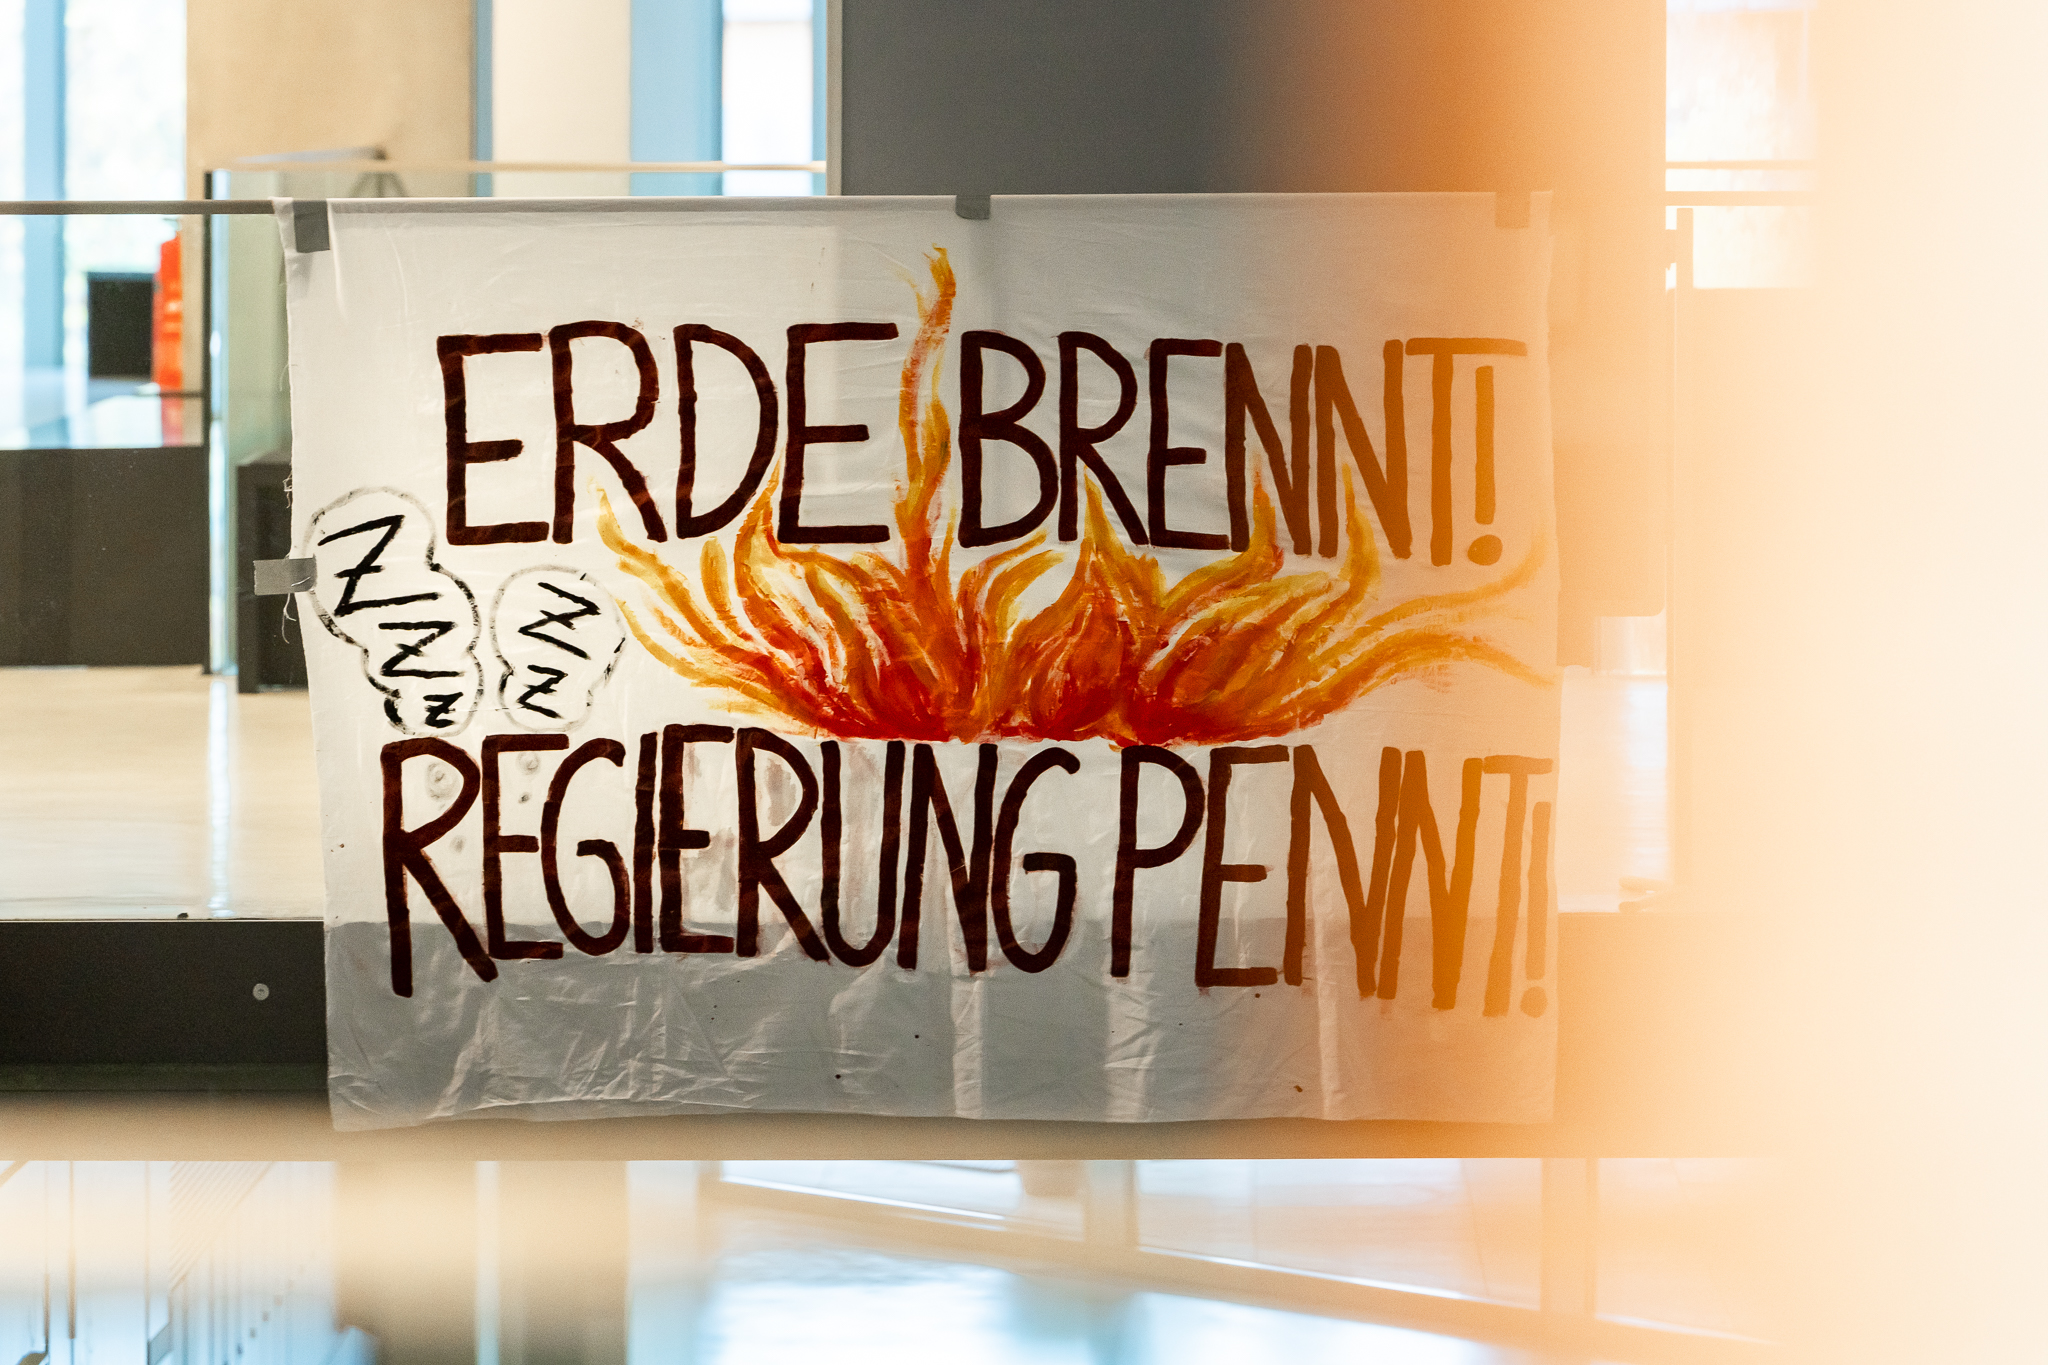 ERDE BRENNT!
Z Z Z Z Z
REGIERUNG PENNT!